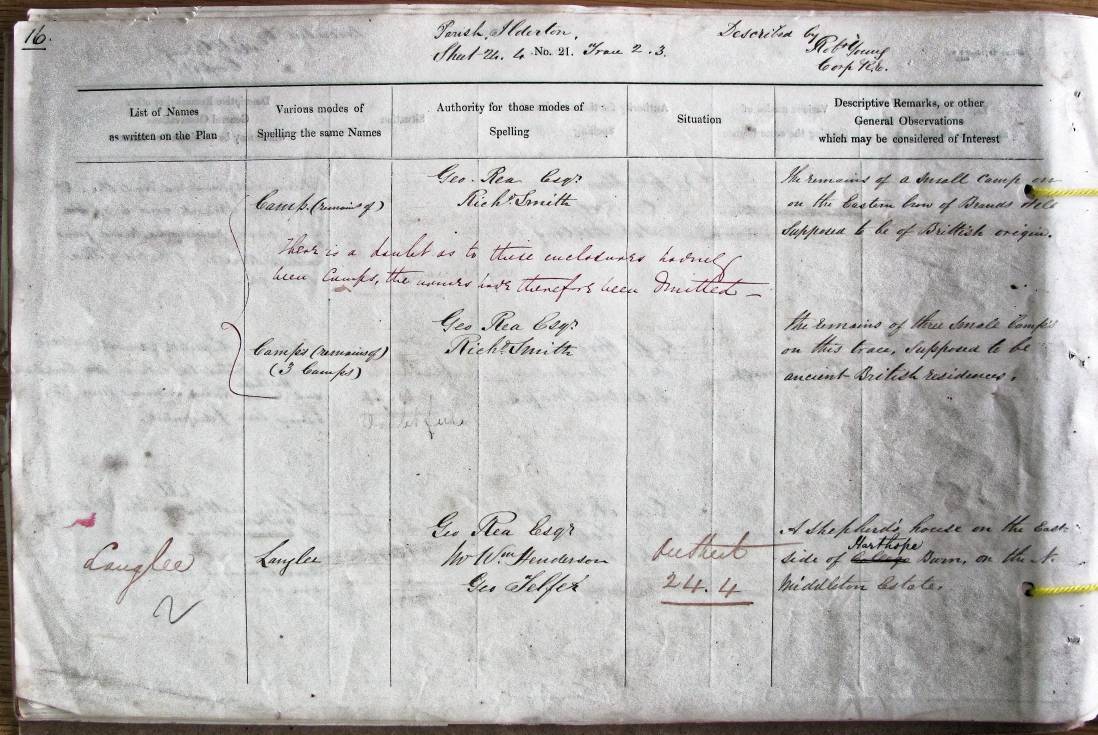 16.
Parish, Ilderton,
Sheet 24. 4 No. 21. Trace 2.3.
Described by
Robt Young
Corp R.E.
List of Names
as written on the Plan
Various modes of
Spelling the same Names
Authority for those modes of
Spelling
Situation
Descriptive Remarks, or other
General Observations
which may be considered of Interest
Camp. (remains of)
Geo. Rea Esqr
Richd Smith
The remains of a small Camp on
on the Eastern brow of Brands Hill
Supposed to be of Brittish origin.
There is a doubt as to these enclosures having
been Camps, the names have therefore been Omitted —
Camps (remains of)
(3 Camps)
Geo Rea Esqr
Richd Smith
the remains of three small Camps
on this trace, Supposed to be
ancient British residences.
Langlee
Langlee
Geo Rea Esqr
Mr Wm Henderson
Geo Telfer
On Sheet
24.4
A Shepherd's house on the East
side of Harthope Burn, on the N.
Middleton Estate.